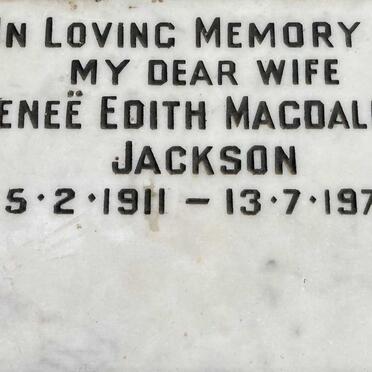 IN LOVING MEMORY
MY DEAR WIFE
ENEË EDITH MAGDAL
JACKSON
5·2·1911 – 13·7·197